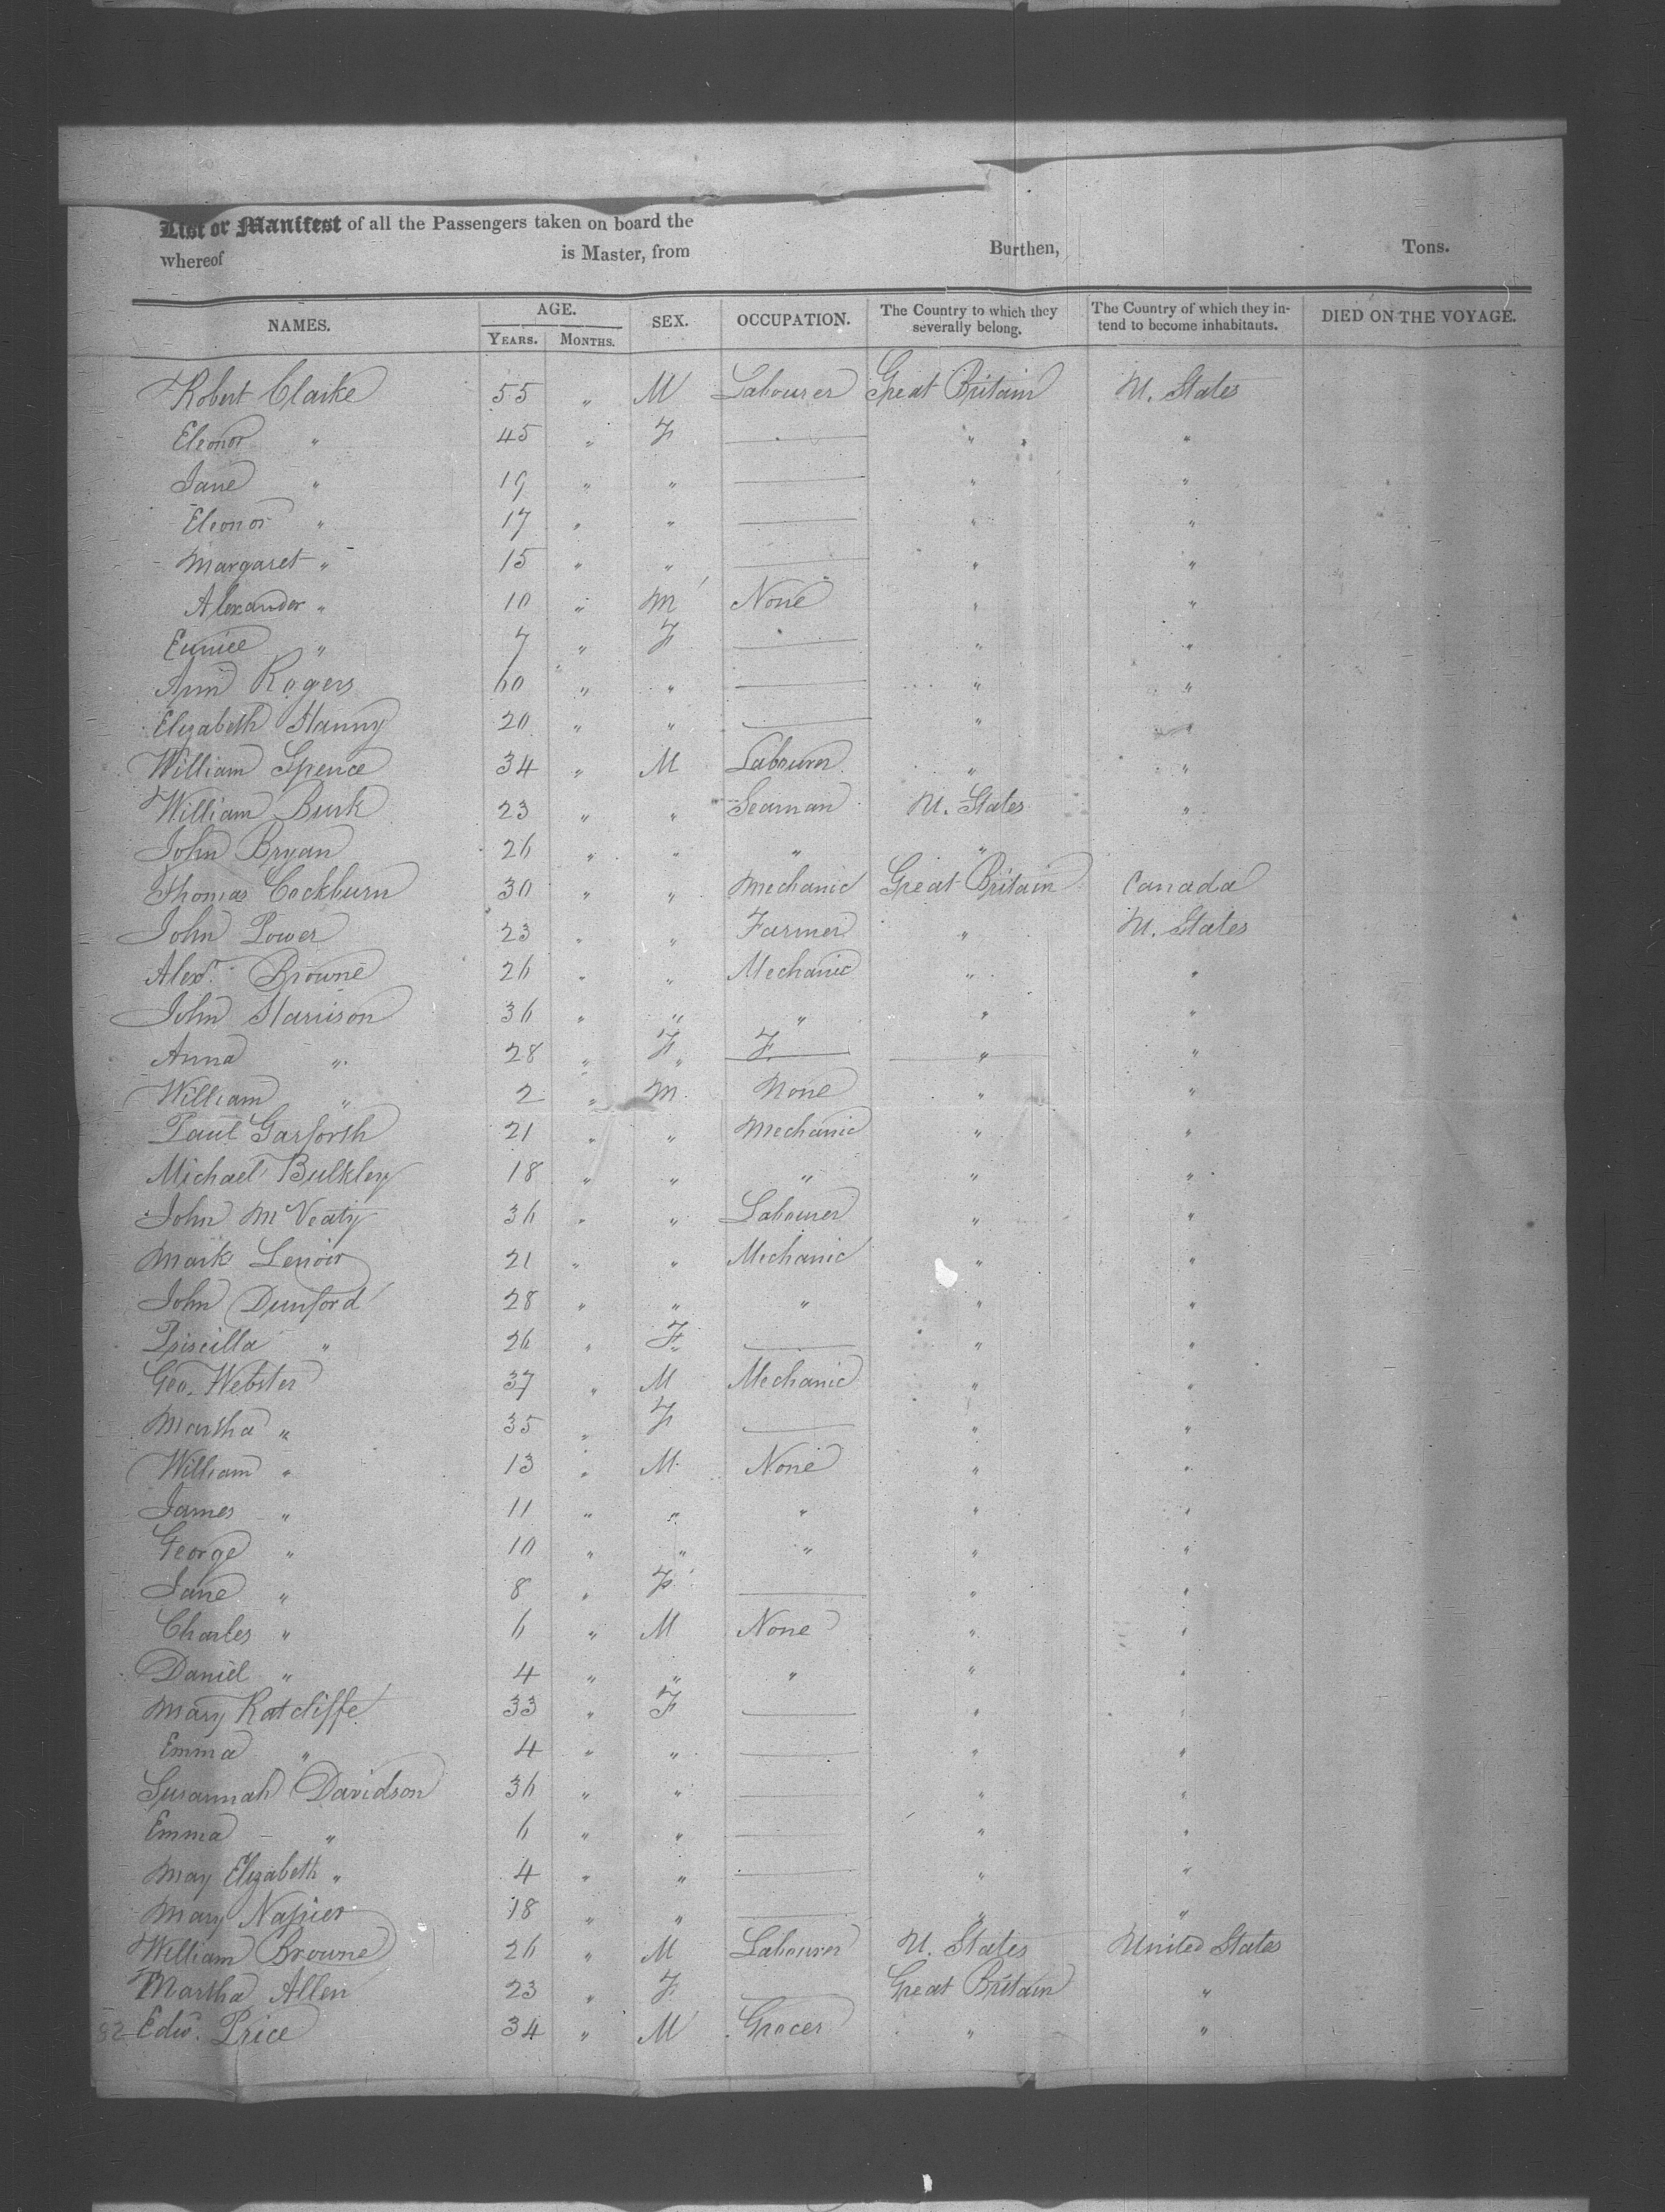 List or Manifest of all the Passengers taken on board the
whereof is Master, from Burthen, Tons.
NAMES. AGE. YEARS. MONTHS. SEX. OCCUPATION. The Country to which they severally belong. The Country of which they intend to become inhabitants. DIED ON THE VOYAGE.
Robert Clarke 55 " M Labourer Great Britain U. States
Eleonor " 45 " F — " "
Jane " 19 " " — " "
Eleonor " 17 " " — " "
Margaret " 15 " " — " "
Alexander " 10 " M None " "
Eunice " 7 " F — " "
Ann Rogers 60 " " — " "
Elizabeth Hanny 20 " " — " "
William Spence 34 " M Labourer " "
William Burk 23 " " Seaman U. States "
John Bryan 26 " " " "
Thomas Cockburn 30 " " Mechanic Great Britain Canada
John Power 23 " " Farmer " U. States
Alexr. Browne 26 " " Mechanic " "
John Harrison 36 " " " " "
Anna " 28 " F " F — " "
William " 2 " M. None " "
Paul Garforth 21 " " Mechanic " "
Michael Bulkley 18 " " " " "
John McVeaty 36 " " Labourer " "
Mark Lenoir 21 " " Mechanic " "
John Dunford 28 " " " " "
Priscilla " 26 " F — " "
Geo. Webster 37 " M Mechanic " "
Martha " 35 " F — " "
William " 13 " M None " "
James " 11 " " " " "
George " 10 " " " " "
Jane " 8 " F — " "
Charles " 6 " M None " "
Daniel " 4 " " " " "
Mary Ratcliffe 33 " F — " "
Emma " 4 " " — " "
Susannah Davidson 36 " " — " "
Emma " 6 " " — " "
May Elizabeth " 4 " " — " "
Mary Napier 18 " " — " "
William Browne 26 " M Labourer U. States United States
Martha Allen 23 " F — Great Britain "
82 Edw. Price 34 " M Grocer " "